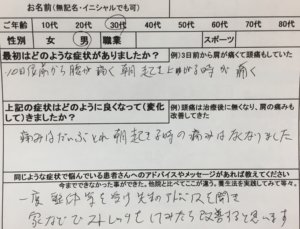 お名前(無記名・イニシャルでも可)
ご年齢 10代 20代 30代 40代 50代 60代 70代 80代
性別 女 男 職業 スポーツ
最初はどのような症状がありましたか? 例)3日前から肩が痛くて頭痛もしていた
10日位前から腰が痛く朝起き上がる時が痛く
上記の症状はどのように良くなって(変化して)きましたか? 例)頭痛は治療後に無くなり、肩の痛みも改善してきた
痛みはだいぶとれ朝起きる時の痛みはなくなりました
同じような症状で悩んでいる患者さんへのアドバイスやメッセージがあれば教えてください
今までできなかった事ができた。他院と比べてここが違う。養生法を実践してみて等々。
一度 整体等を受け先生のアドバイスを聞き
家などでストレッチをしてみたら改善すると思います